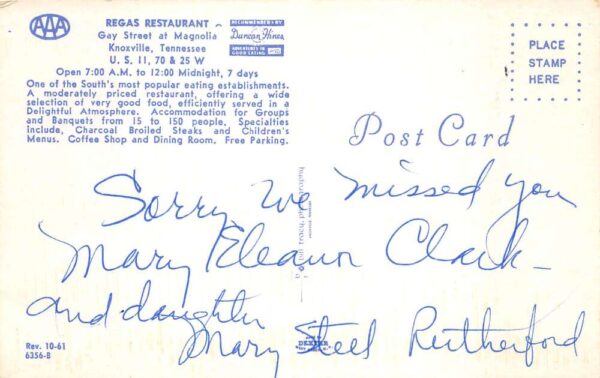 AAA
REGAS RESTAURANT
Gay Street at Magnolia
Knoxville, Tennessee
U. S. 11, 70 & 25 W
Open 7:00 A.M. to 12:00 Midnight, 7 days
RECOMMENDED BY
Duncan Hines
ADVENTURES IN
GOOD EATING
One of the South's most popular eating establishments.
A moderately priced restaurant, offering a wide
selection of very good food, efficiently served in a
Delightful Atmosphere. Accommodation for Groups
and Banquets from 15 to 150 people. Specialties
include, Charcoal Broiled Steaks and Children's
Menus. Coffee Shop and Dining Room. Free Parking.
PLACE
STAMP
HERE
Post Card
Sorry we missed you
Mary Eleanor Clark -
and daughter
Mary Steel Rutherford
photography
DEXTER
Rev. 10-61
6356-B